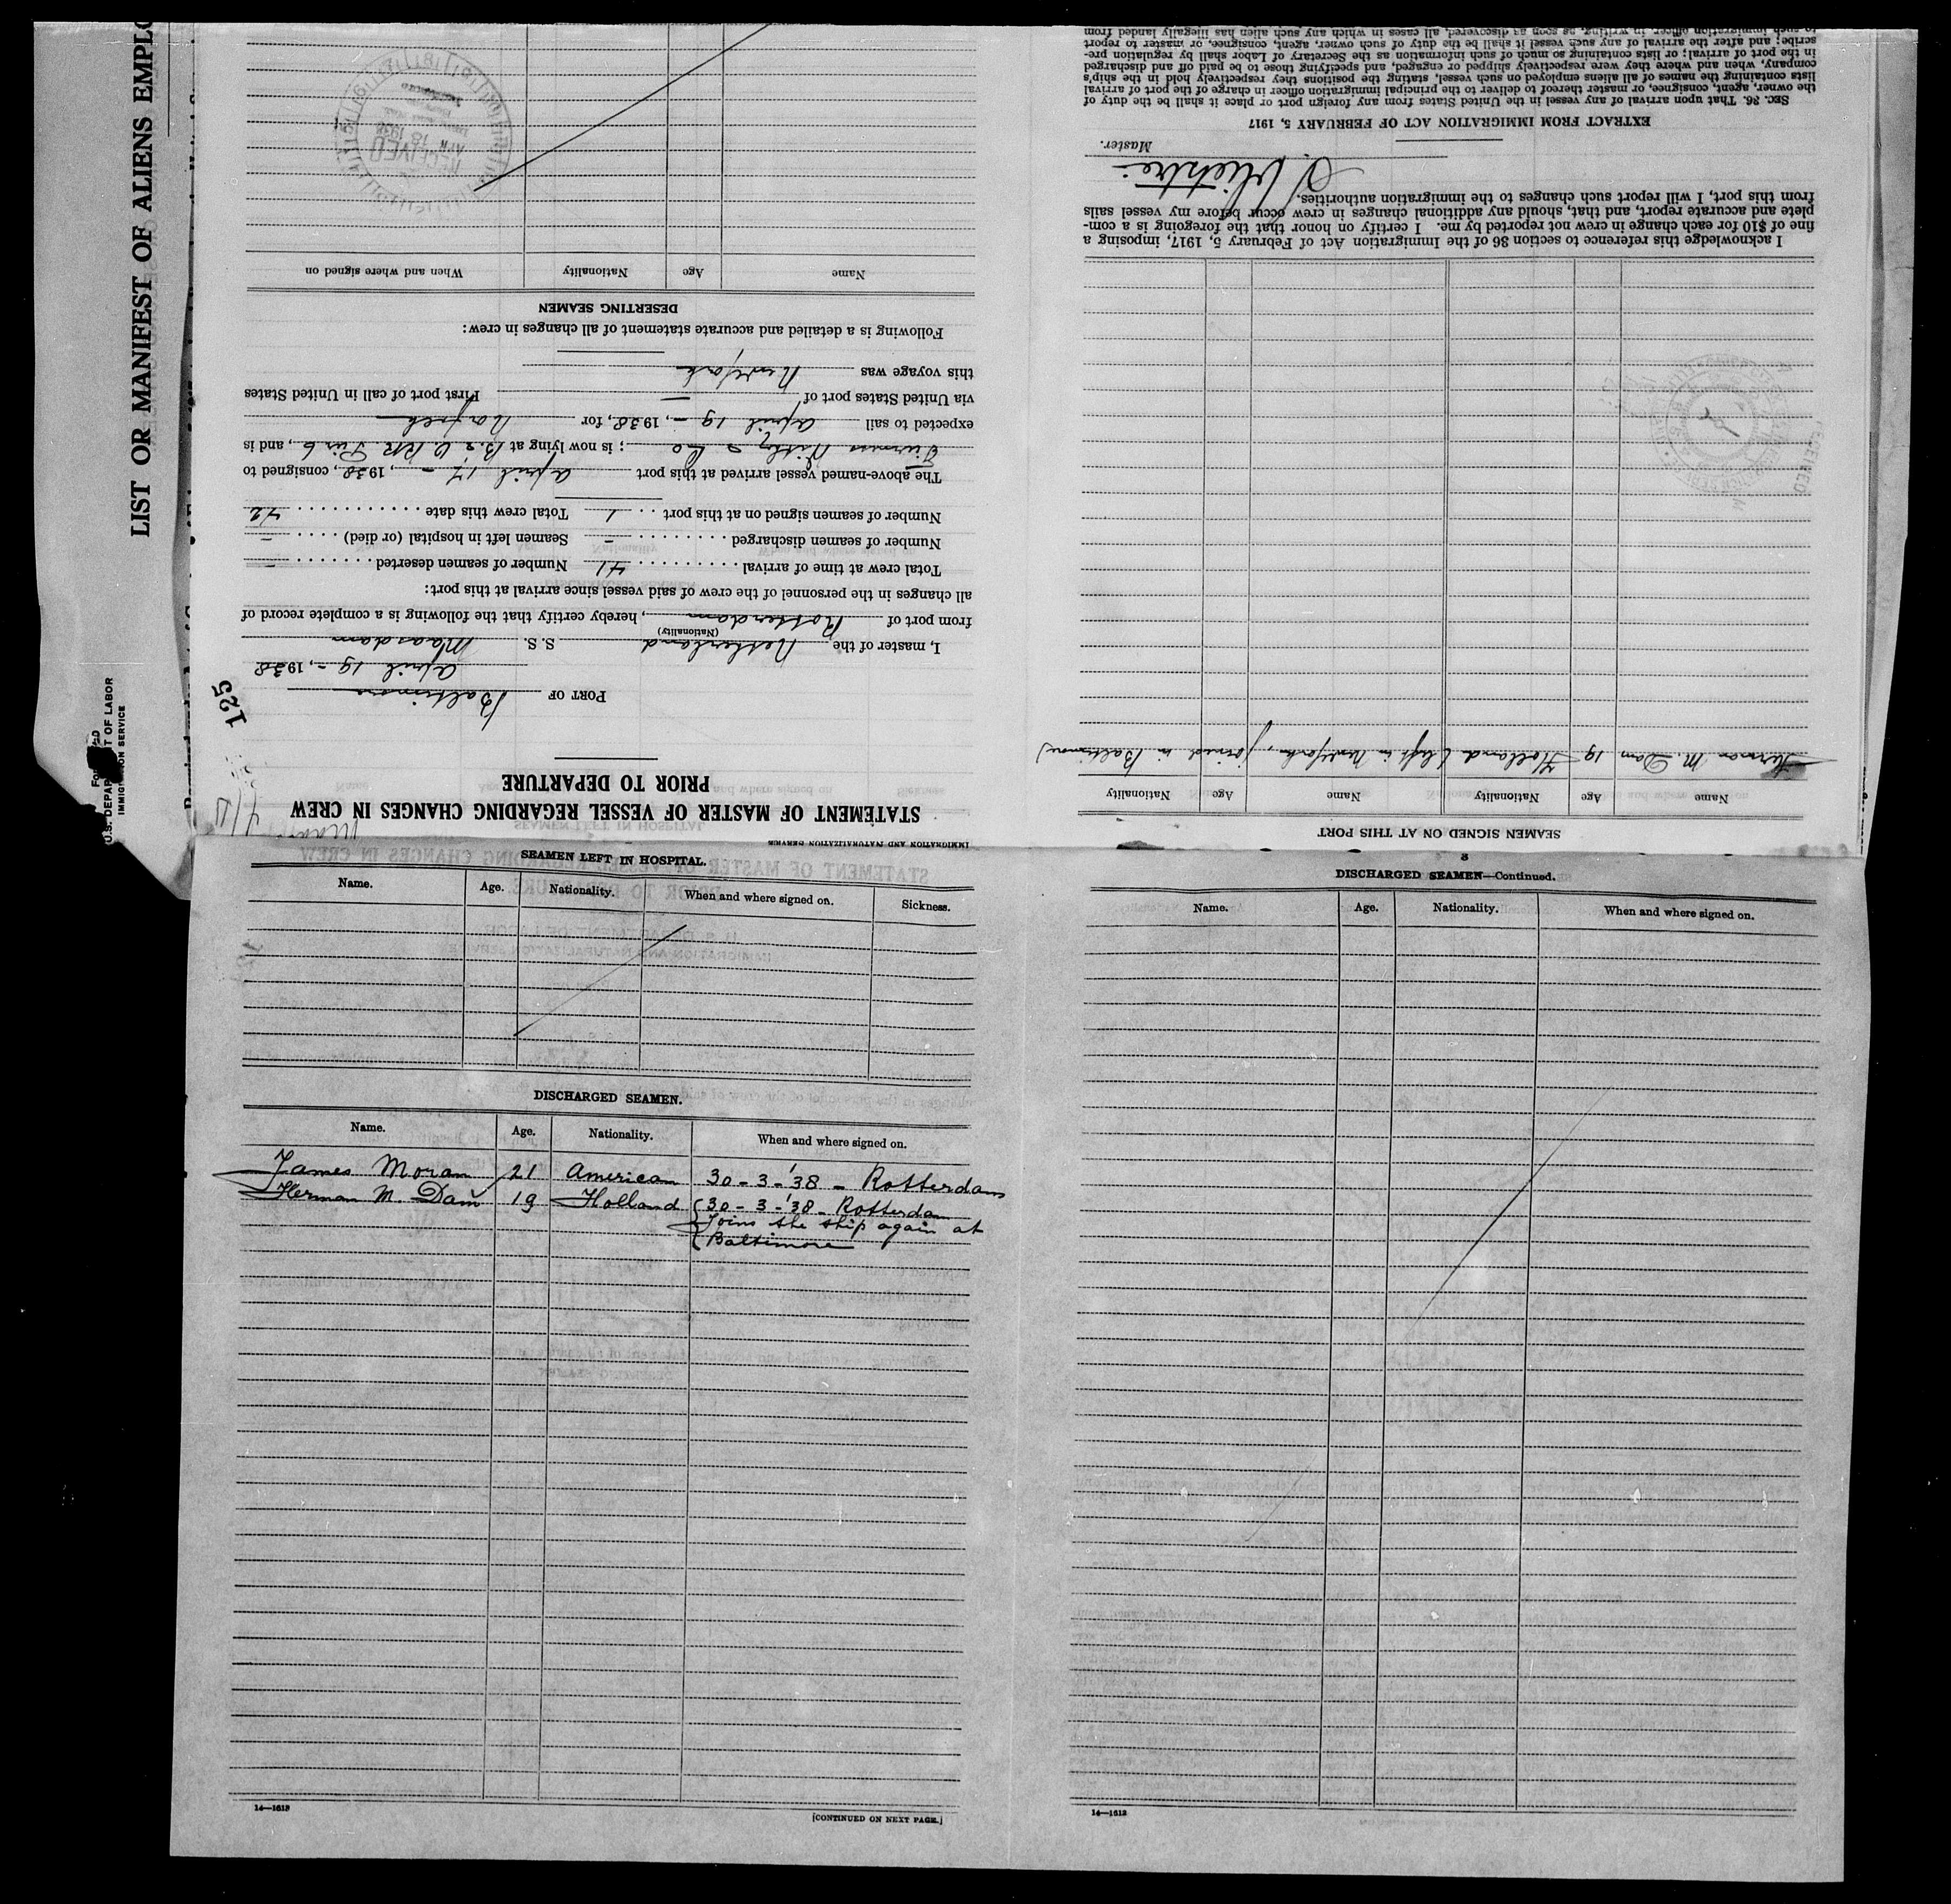 LIST OR MANIFEST OF ALIENS EMPLO
U.S. DEPARTMENT OF LABOR
IMMIGRATION SERVICE
125
IMMIGRATION AND NATURALIZATION SERVICE
STATEMENT OF MASTER OF VESSEL REGARDING CHANGES IN CREW
PRIOR TO DEPARTURE
PORT OF Baltimore
April 19 -, 1938
I, master of the Netherland S. S. Maasdam
(Nationality)
from port of Rotterdam, hereby certify that the following is a complete record of
all changes in the personnel of the crew of said vessel since arrival at this port:
Total crew at time of arrival 41 Number of seamen deserted -
Number of seamen discharged - Seamen left in hospital (or died) -
Number of seamen signed on at this port 1 Total crew this date 42
The above-named vessel arrived at this port April 17 -, 1938, consigned to
Furness Withy & Co; is now lying at B. & O. RR Pier 6, and is
expected to sail April 19 -, 1938, for Norfolk
via United States port of — First port of call in United States
this voyage was New York
Following is a detailed and accurate statement of all changes in crew:
DESERTING SEAMEN
Name Age Nationality When and where signed on
RECEIVED
APR 18 1938
SEAMEN SIGNED ON AT THIS PORT
Name Age Nationality Name Age Nationality
Herman M. Dam 19 Holland (left in New York, joined in Baltimore)
I acknowledge this reference to section 36 of the Immigration Act of February 5, 1917, imposing a
fine of $10 for each change in crew not reported by me. I certify on honor that the foregoing is a com-
plete and accurate report, and that, should any additional changes in crew occur before my vessel sails
from this port, I will report such changes to the immigration authorities.
Master.
EXTRACT FROM IMMIGRATION ACT OF FEBRUARY 5, 1917
SEC. 36. That upon arrival of any vessel in the United States from any foreign port or place it shall be the duty of
the owner, agent, consignee, or master thereof to deliver to the principal immigration officer in charge of the port of arrival
lists containing the names of all aliens employed on such vessel, stating the positions they respectively hold in the ship's
company, when and where they were respectively shipped or engaged, and specifying those to be paid off and discharged
in the port of arrival; or lists containing so much of such information as the Secretary of Labor shall by regulation pre-
scribe; and after the arrival of any such vessel it shall be the duty of such owner, agent, consignee, or master to report
to such immigration officer, in writing, as soon as discovered, all cases in which any such alien has illegally landed from
RECEIVED
SEAMEN LEFT IN HOSPITAL.
Name. Age. Nationality. When and where signed on. Sickness.
DISCHARGED SEAMEN.
Name. Age. Nationality. When and where signed on.
James Moran 21 American 30-3-'38 - Rotterdam
Herman M. Dam 19 Holland 30-3-'38 - Rotterdam
Joins the ship again at
Baltimore
14—1613
[CONTINUED ON NEXT PAGE.]
3
DISCHARGED SEAMEN—Continued.
Name. Age. Nationality. When and where signed on.
14—1613